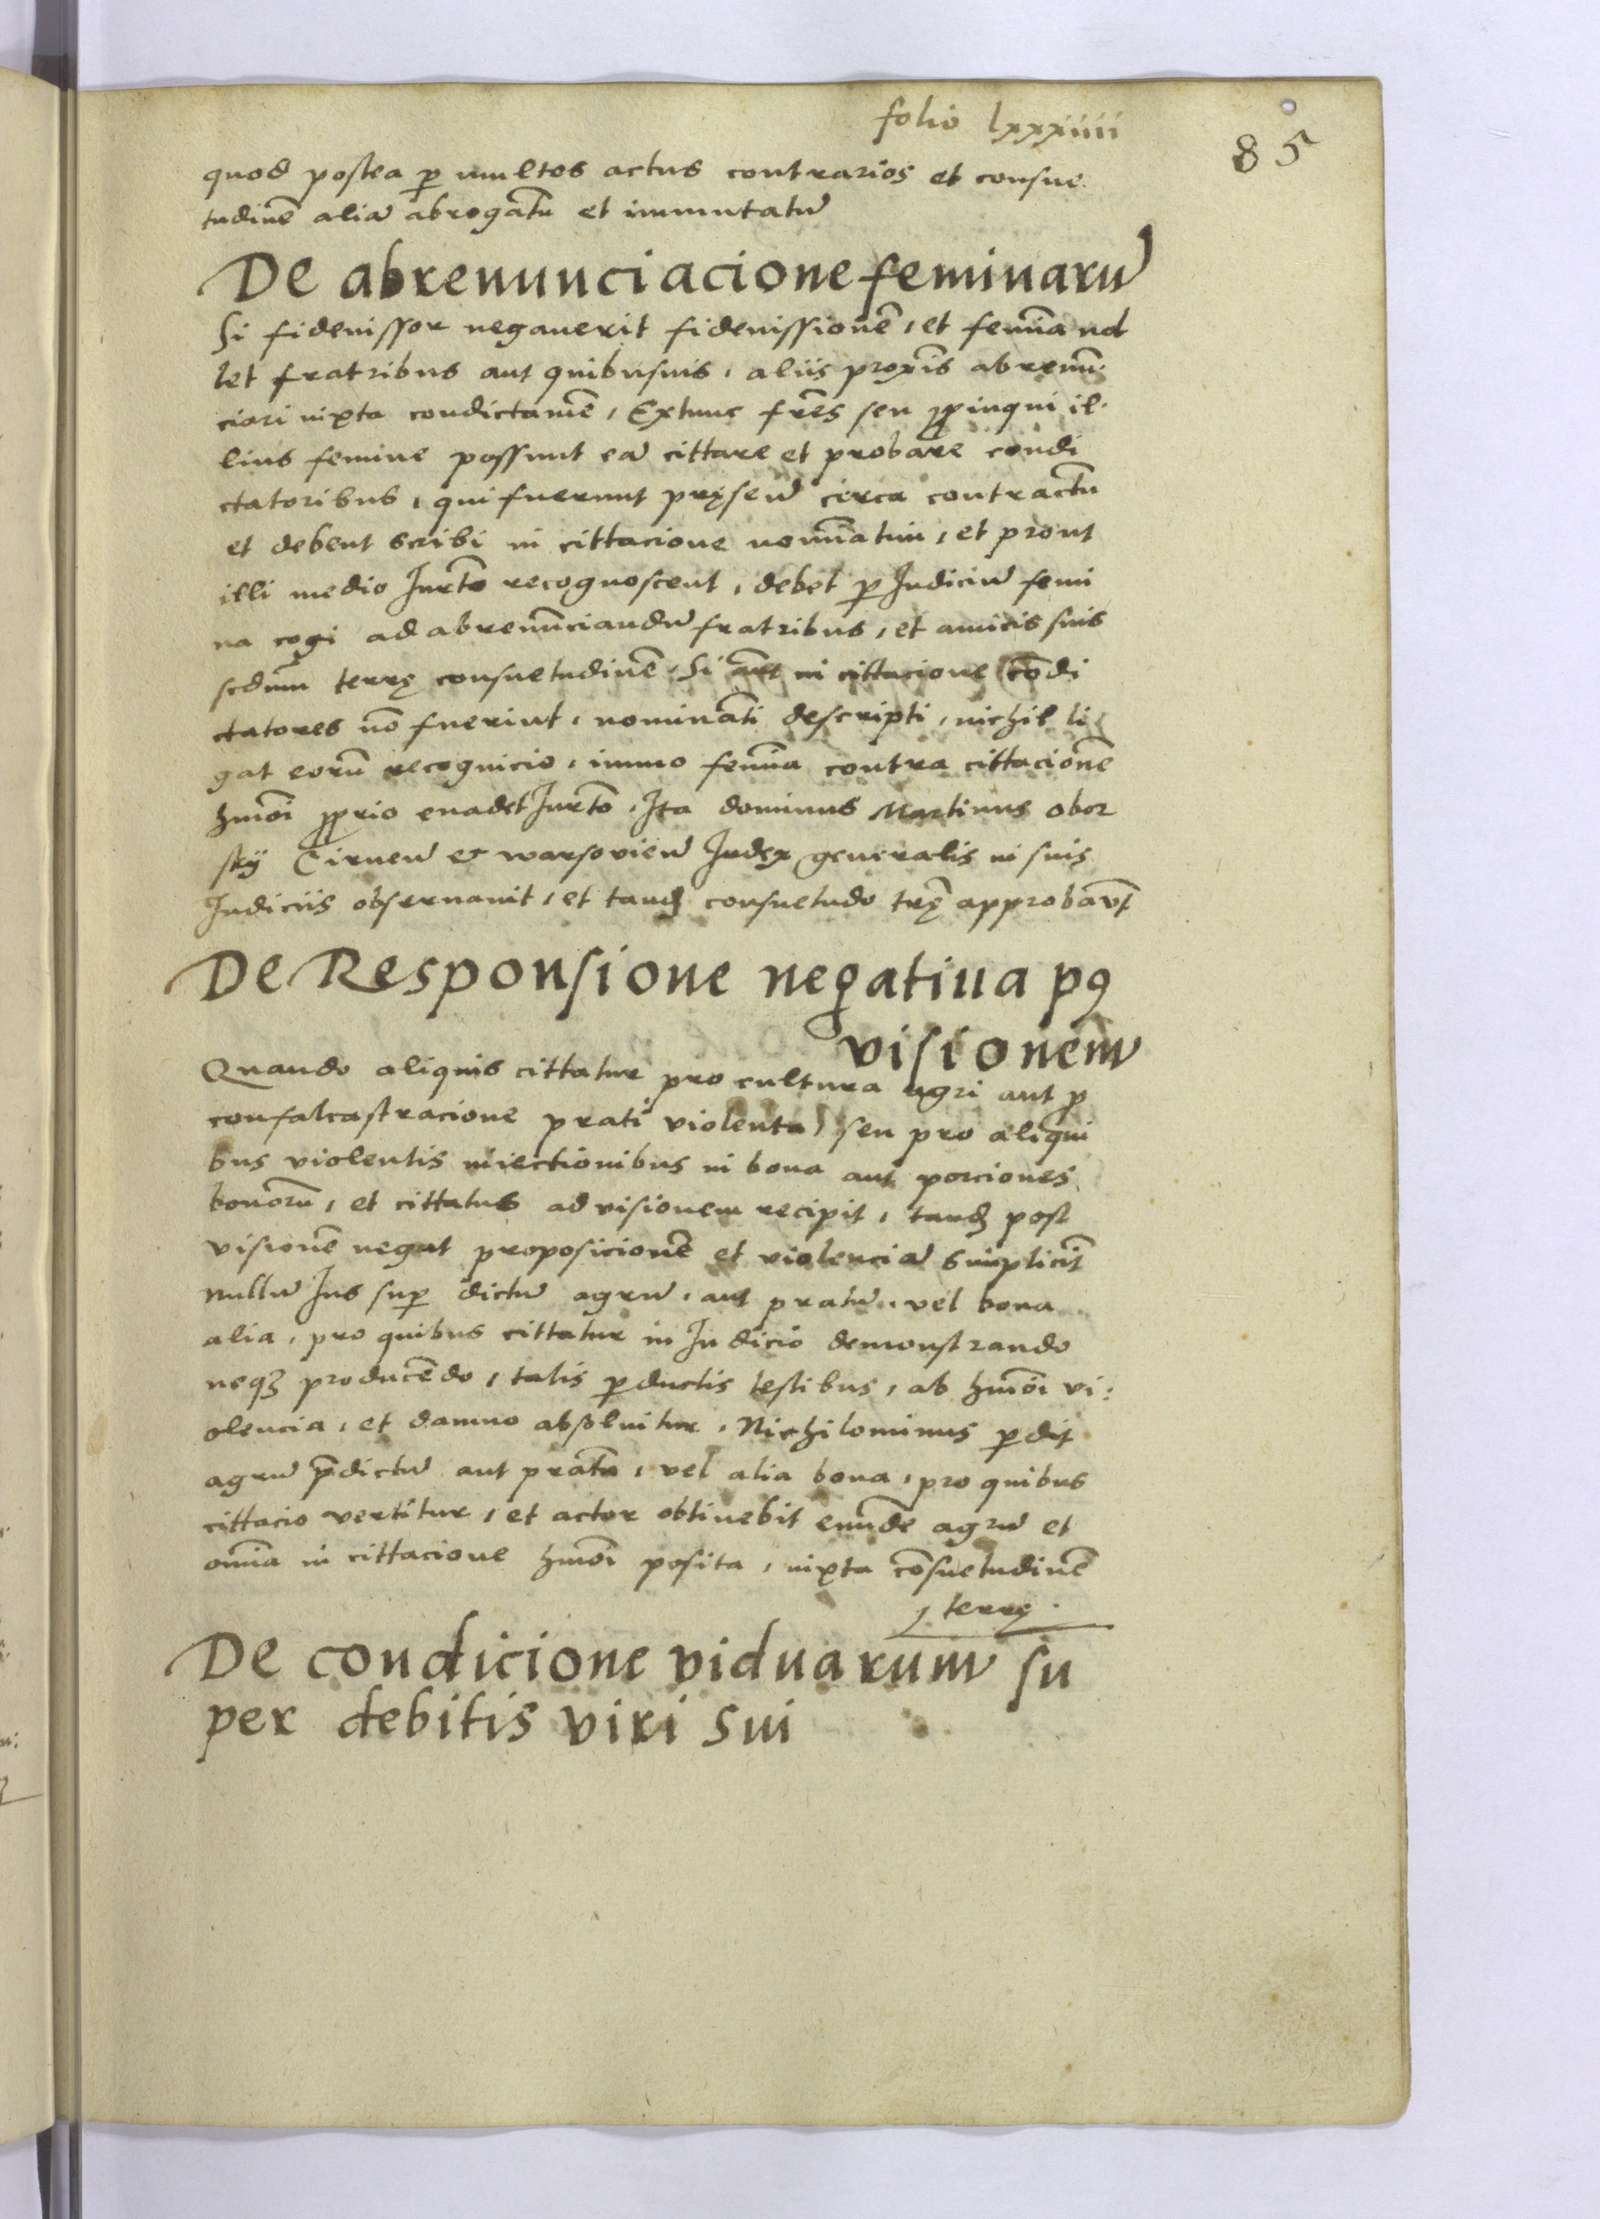 folio lxxxiiii
85
quod postea ꝑ multos actus contrarios et consue
tudinē aliā abrogatū et immutatū
De abrenunciacione feminarū
Si fideiussor negauerit fideiussionē, et femīa nol
let fratribus aut quibusuis, aliis proxīs abrenū
ciari iuxta condictamē, Extunc frēs seu ꝓpinqui il
lius femine possunt eā cittare et probare condi
ctatoribus, qui fuerunt pręsen̄ circa contractū
et debent scribi in cittacione nomīatim, et prout
illi medio Jurtō recognoscent, debet ꝑ Judiciū femi
na cogi ad abrenūciandū fratribus, et amicis suis
scdum̄ terrę consuetudinē. Si aūt in cittacione cōdi
ctatores nō fuerint, nominātī descripti, nichil li
gat eorū recognicio, immo femīa contra cittacionē
hmōi ꝓprio euadet Jurtō. Ita dominus Martinus obor
skÿ Cirnen̄ et warsovien̄ Judex generalis in suis
Judiciis obseruauit, et tandꝫ consuetudo trę̄ approbavt̄
De Responsione negatiua pꝰ
visionem
Quando aliquis cittatur pro cultura agri aut ꝓ
confalcastracione prati violenta, seu pro aliqui
bus violentis iniectionibus in bona aut porciones
bonorū, et cittatus ad visionem recipit, tandꝫ post
visionē negat proposicionē et violenciā simplicit̄
nullū Jus suꝑ dictū agrū, aut pratū, vel bona
alia, pro quibus cittatur in Judicio demonstrando
neqꝫ producēdo, talis ꝓductis testibus, ab hmōi vi:
olencia, et damno absoluitur, Nichilominus ꝑdit
agrū p̄dictū aut pratū, vel alia bona, pro quibus
cittacio vertitur, et actor obtinebit eundē agrū et
omīa in cittacione hmōi posita, iuxta cōsuetudinē
terrę.
De condicione viduarum su
per debitis viri sui